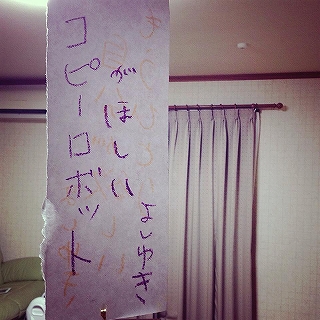 コピーロボット
がほしい
よしゆき